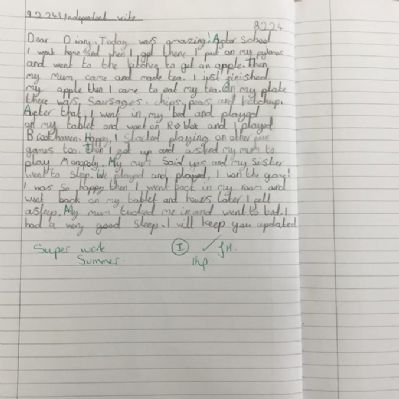 9.2.24 Independent write
8.2.24
Dear Diary, Today was amazing! After School
I went home and when I got there I put on my pyjamas
and went to the kitchen to get an apple. Then
my mum came and made tea. I just finished
my apple then I came to eat my tea. On my plate
there was, Sausages, chips, peas, and ketchup.
After that, I went in my bed and played
on my tablet and went on Roblox and I played
Brookhaven. Happy, I started playing on other
games too. Then I got up and asked my mum to
play Monopoly. My mum said yes and my sister
went to sleep. We played and played, I won the game!
I was so happy then I went back in my room and
went back on my tablet and hours later I fell
asleep. My mum tucked me in and went to bed. I
had a very good sleep. I will keep you updated
Super work
Summer.
I ✓
1hp